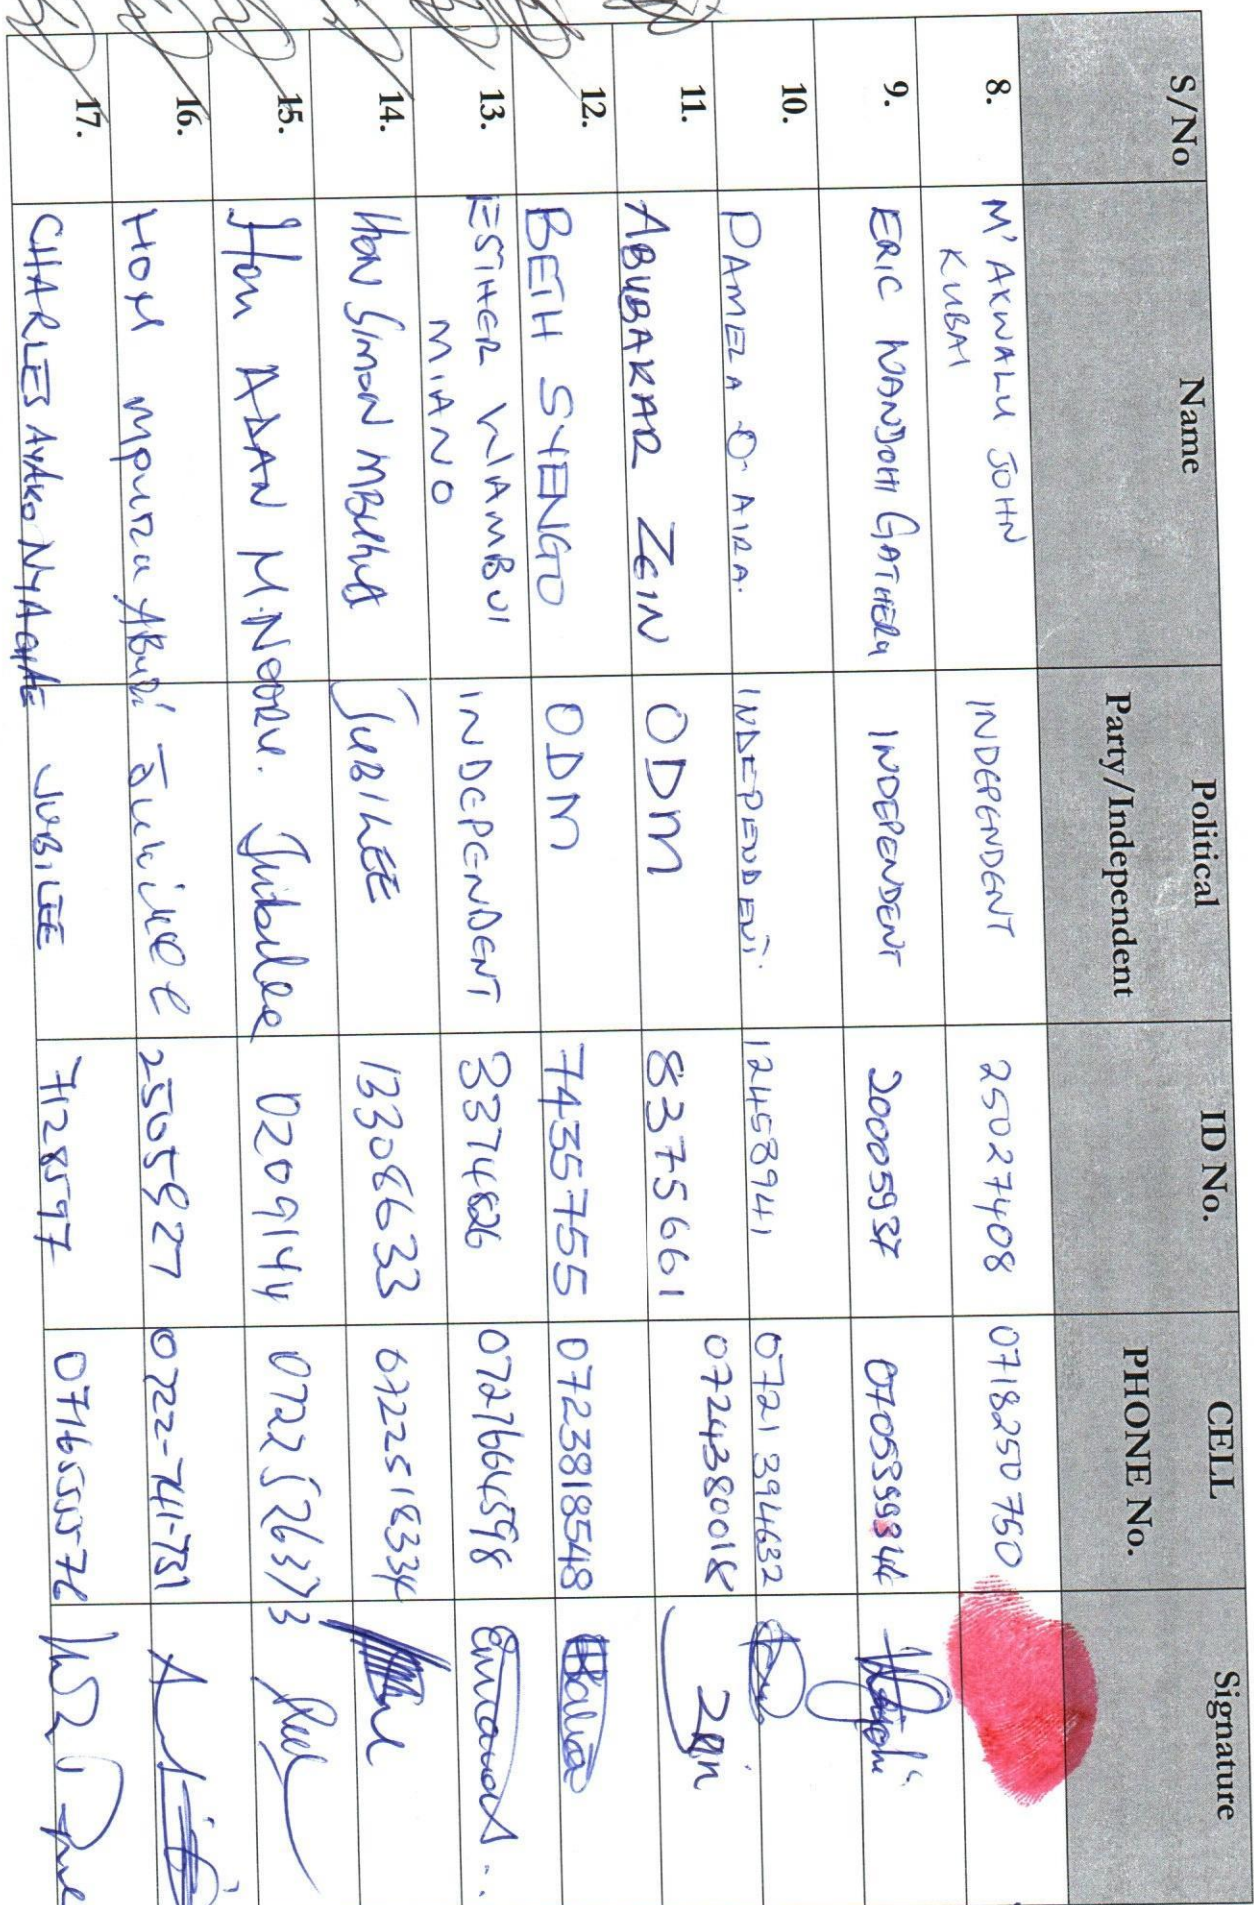 S/No Name Political Party/Independent ID No. CELL PHONE No. Signature
8. M'AKWALU JOHN KUBAI INDEPENDENT 25027408 0718250750
9. ERIC WANJOHI GATHERU INDEPENDENT 20005937
10. PAMELA O. AIRA. INDEPENDENT. 12458941 0721394632
11. ABUBAKAR ZEIN ODM 8375661 0724380018 Zein
12. BETH SYENGO ODM 74357755 0723818548
13. ESTHER WAMBUI MIANO INDEPENDENT 3374826 0727664598
14. HON SIMON JUBILEE 13308633 0722518334
15. Hon ADAN M. NOORU. Jubilee 0209144 0722526373
16. HON Mpuru Aburi Jubilee 2505927 0722-741-731
17. CHARLES AYAKO NYACHAE JUBILEE 7128597